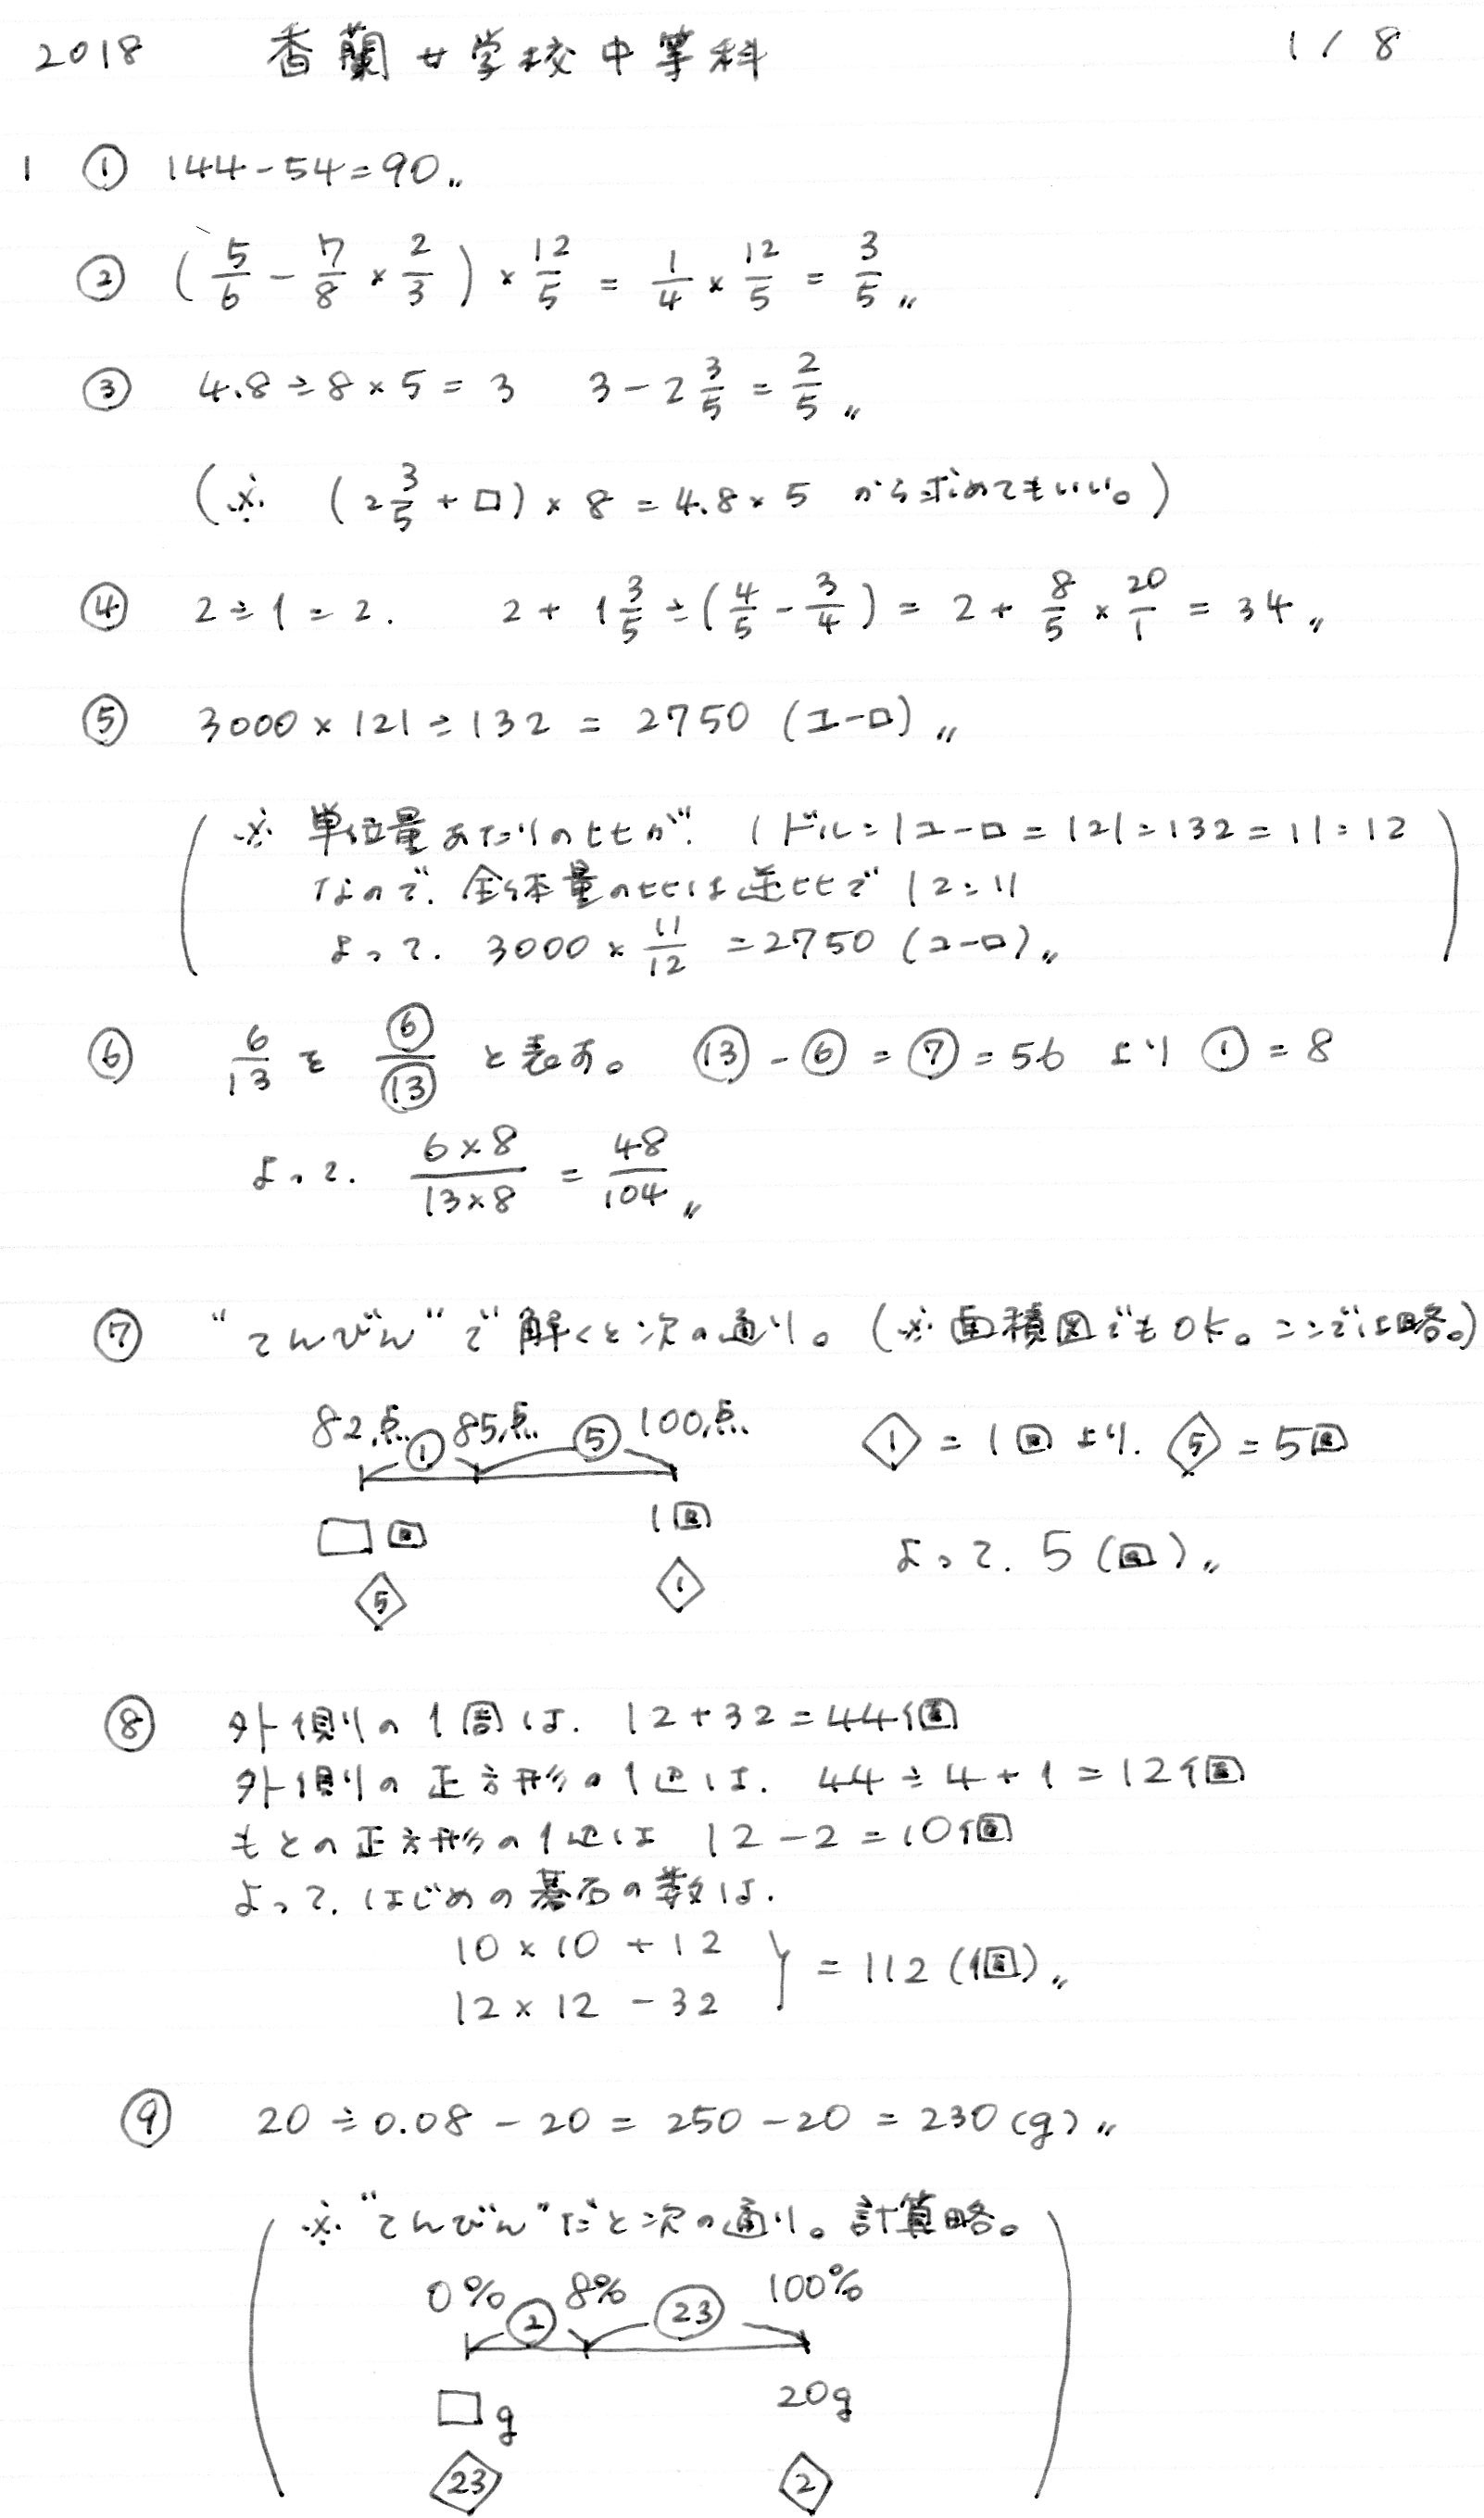 2018 香蘭女学校中等科 1/8
1 ① 144-54=90〃
② (5/6 - 7/8 × 2/3) × 12/5 = 1/4 × 12/5 = 3/5〃
③ 4.8÷8×5=3 3-2 3/5 = 2/5〃
(※ (2 3/5 + □)×8=4.8×5 から求めてもいい。)
④ 2÷1=2. 2+1 3/5÷(4/5-3/4)=2+8/5×20/1=34〃
⑤ 3000×121÷132=2750(ユーロ)〃
※ 単位量あたりの比が、1ドル:1ユーロ=121:132=11:12
なので、全体量の比は逆比で 12:11
よって、3000×11/12=2750(ユーロ)〃
⑥ 6/13 を ⑥/⑬ と表す。 ⑬-⑥=⑦=56 より ①=8
よって、 6×8/13×8 = 48/104〃
⑦ "てんびん"で解くと次の通り。(※面積図でもOK。ここでは略。)
82点 ① 85点 ⑤ 100点
◇1=1回より、◇5=5回
□回 1回
よって、5(回)〃
◇5 ◇1
⑧ 外側の1周は、12+32=44個
外側の正方形の1辺は、44÷4+1=12個
もとの正方形の1辺は 12-2=10個
よって、はじめの碁石の数は、
10×10+12
12×12-32 } =112(個)〃
⑨ 20÷0.08-20=250-20=230(g)〃
※"てんびん"だと次の通り。計算略。
0% ② 8% ㉓ 100%
□g 20g
◇23 ◇2